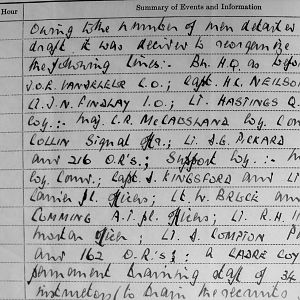 Hour Summary of Events and Information
Owing to the number of men detailed
draft it was decided to reorganize
the following lines:- Bn. H.Q. as before
J.O.E. VANDELEUR C.O.; Capt. H.C. NEILSON
Lt. J.N. FINDLAY I.O.; Lt. HASTINGS Q.
Coy.:- Maj. C.R. McCAUSLAND Coy. Com
COLLIN Signal Ofr.; Lt. S.G. PICKARD
and 216 O.R's.; Support Coy.:- M
Coy. Com.; Capt. J. KINGSFORD and Lt
Carrier pl. Officers; Lt. W. BRECK and
COMMING A.T. pl. Officers; Lt. R.H.
mortar Officer; Lt. S. COMPTON P
and 162 O.R's; a CADRE COY
permanent training staff of 34
instructors (to train the recruits